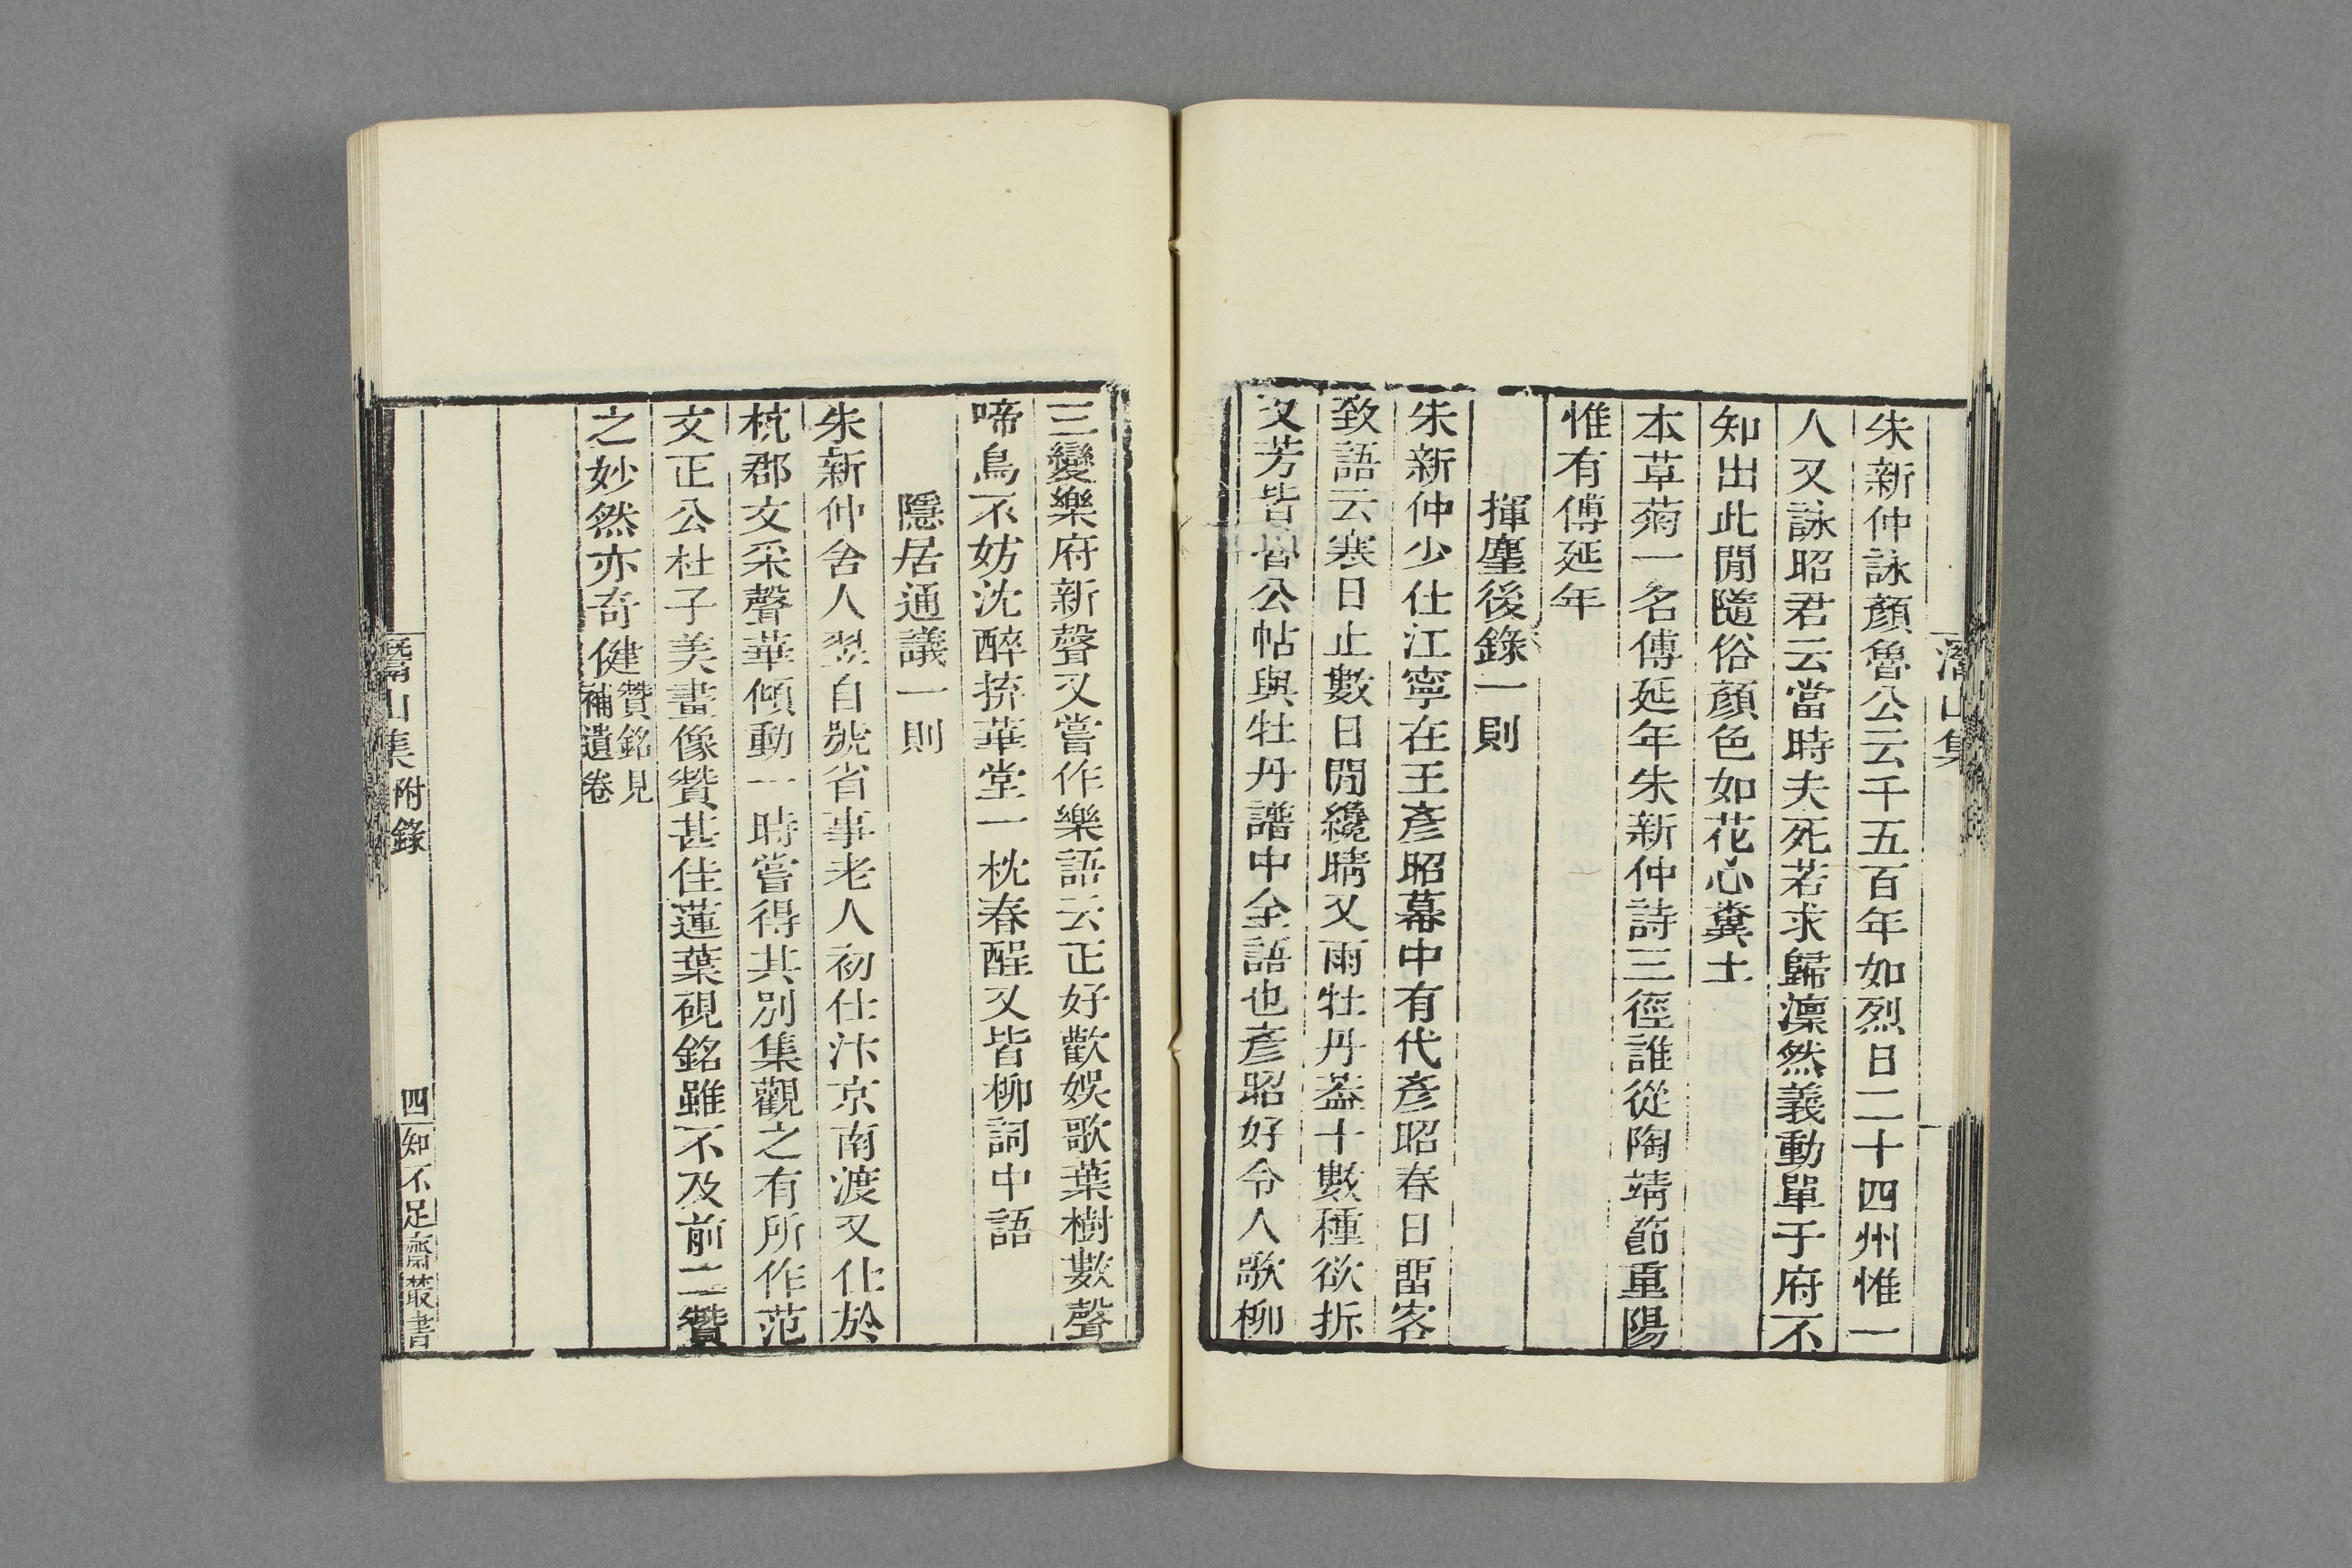 朱新仲詠顏魯公云千五百年如烈日二十四州惟一
人又詠昭君云當時夫死若求歸凜然義動單于府不
知出此閒隨俗顏色如花心糞土
本草菊一名傅延年朱新仲詩三徑誰從陶靖節重陽
惟有傅延年
揮麈後錄一則
朱新仲少仕江寧在王彥昭幕中有代彥昭春日畱客
致語云寒日止數日閒纔晴又雨牡丹葢十數種欲拆
又芳皆魯公帖與牡丹譜中全語也彥昭好令人歌柳
三變樂府新聲又嘗作樂語云正好歡娛歌葉樹數聲
啼鳥不妨沈醉拚華堂一枕春酲又皆柳詞中語
隱居通議一則
朱新仲舍人翌自號省事老人初仕汴京南渡又仕於
杭郡文采聲華傾動一時嘗得其別集觀之有所作范
文正公杜子美畫像贊甚佳蓮葉硯銘雖不及前二贊
之妙然亦奇健贊銘見
補遺卷
灊山集 附錄
四
知不足齋叢書